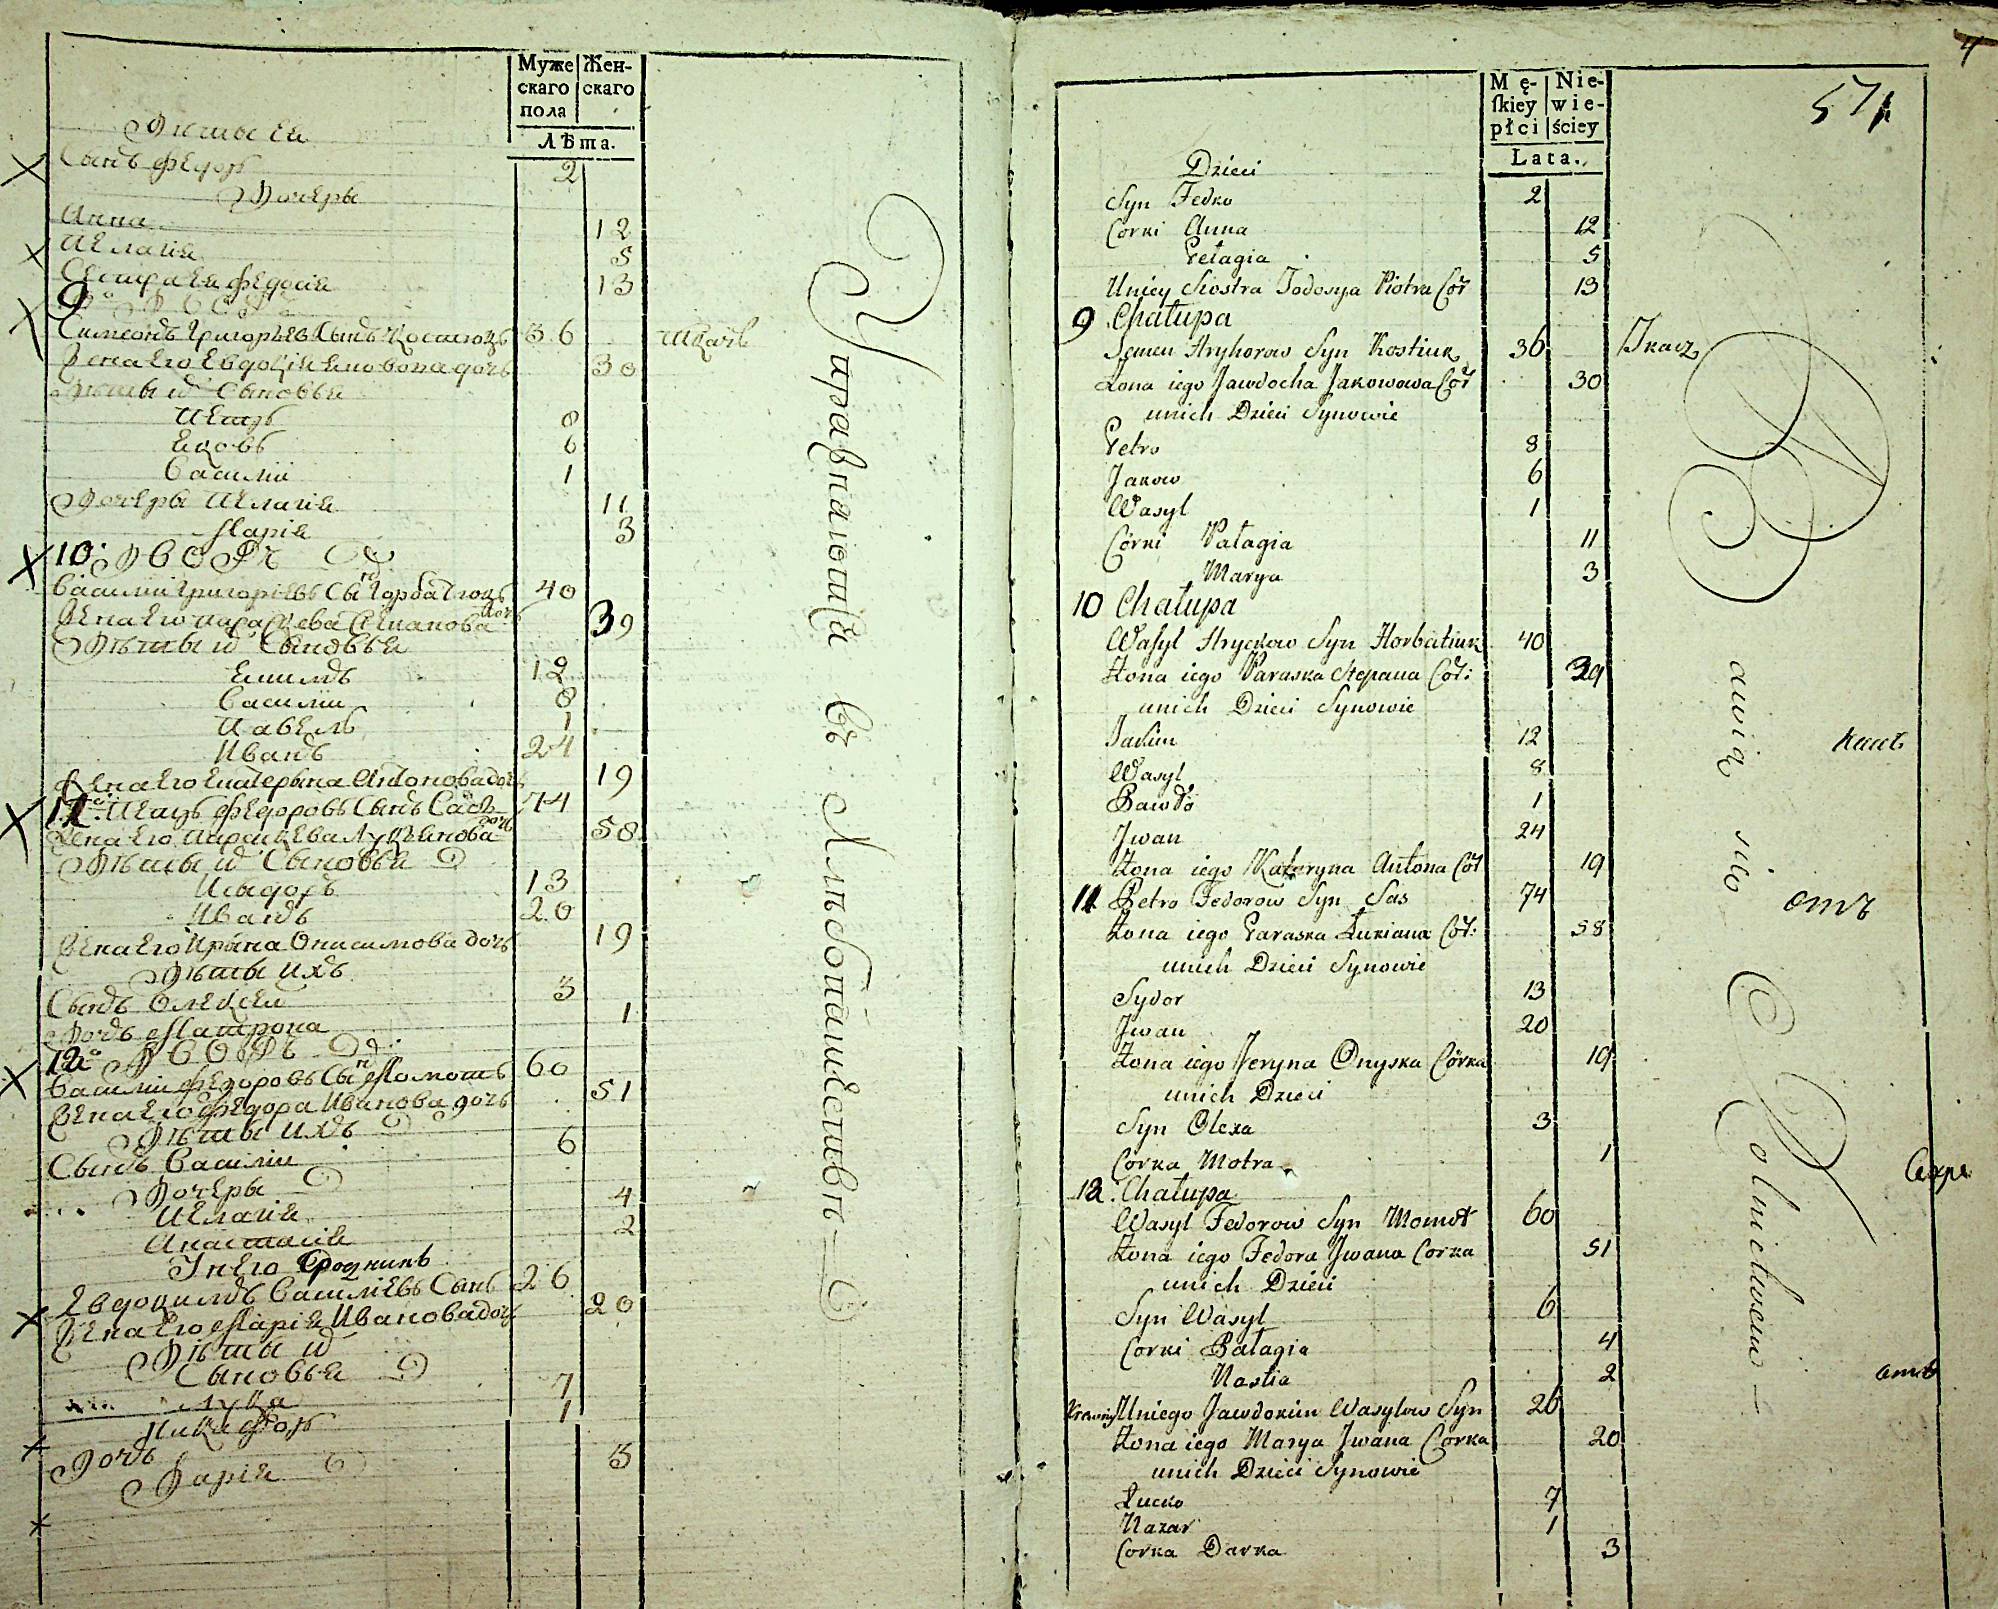 Муже
скаго
пола
Жен-
скаго
Лѣта.
Дѣти ея
Сынъ Федоръ 2
Дочеры
Анна 12
Пелагіе 5
Сестра ея Федосіе 13
9 Дворъ
Симеонъ Григорьевъ Сынъ Костюкъ 36 ткачъ
Жена его Евдокіе Яковова дочь 30
Дѣты ихъ Сыновья
Петръ 8
Яковъ 6
Василій 1
Дочеры Пелагіе 11
Марія 3
10. Дворъ
Василій Григоріевъ Сынъ Горбатюкъ 40
Жена его Парасцева Степанова дочь 39
Дѣты ихъ Сыновья
Якимъ 12
Василій 8
Павелъ 1
Иванъ 24
Жена его Екатерына Антонова дочь 19
11. Петръ Федоровъ Сынъ Сасъ 74
Жена его Парасцева Лукьянова дочь 58
Дѣты ихъ Сыновья
Исыдоръ 13
Иванъ 20
Жена его Ирына Онисимова дочь 19
Дѣты ихъ
Сынъ Олексей 3
Дочь Матрона 1
12 Дворъ
Василій Федоровъ Сынъ Момотъ 60
Жена его Федора Иванова дочь 51
Дѣты ихъ
Сынъ Василій 6
Дочеры
Пелагіе 4
Анастасіе 2
У него
Евдокимъ Василіевъ Сынъ 26
Жена его Марія Иванова дочь 20
Дѣты ихъ
Сыновья
Лука 7
1
Дочь
Дарія 3
Управнаютца въ Хлѣбопашествѣ
4
571
Mę-
ſkiey
płci
Nie-
wie-
ściey
Lata.
Dzieci
Syn Fedko 2
Corki Anna 12
Pelagia 5
Unicy Siostra Fodosya Piotra Cor 13
9 Chałupa
Semen Hryhorow Syn Kostiuk 36 Tkacz
Żona iego Jawdocha Jakowowa Cor 30
unich Dzieci Synowie
Petro 8
Jakow 6
Wasyl 1
Córki Pałagia 11
Marya 3
10 Chałupa
Wasyl Hryckow Syn Horbatiuk 40
Żona iego Paraska Stepana Cor: 39
unich Dzieci Synowie
Jachim 12
Wasyl 8
Pawło 1
Jwan 24
Żona iego Kateryna Antona Cor 19
11 Petro Fedorow Syn Sas 74
Żona iego Paraska Łukiana Cor: 58
unich Dzieci Synowie
Sydor 13
Jwan 20
Żona iego Jeryna Onyska Córka 19
unich Dzieci
Syn Olexa 3
Corka Motra 1
12. Chałupa
Wasyl Fedorow Syn Momot 60
Żona iego Fedora Jwana Corka 51
unich Dzieci
Syn Wasyl 6
Corki Pałagia 4
Nastia 2
Uniego Jawdokim Wasylow Syn 26
Żona iego Marya Jwana Corka 20
unich Dzieci Synowie
Łucko 7
Nazar 1
Corka Darka 3
Bawią się Rolnictwem
отъ